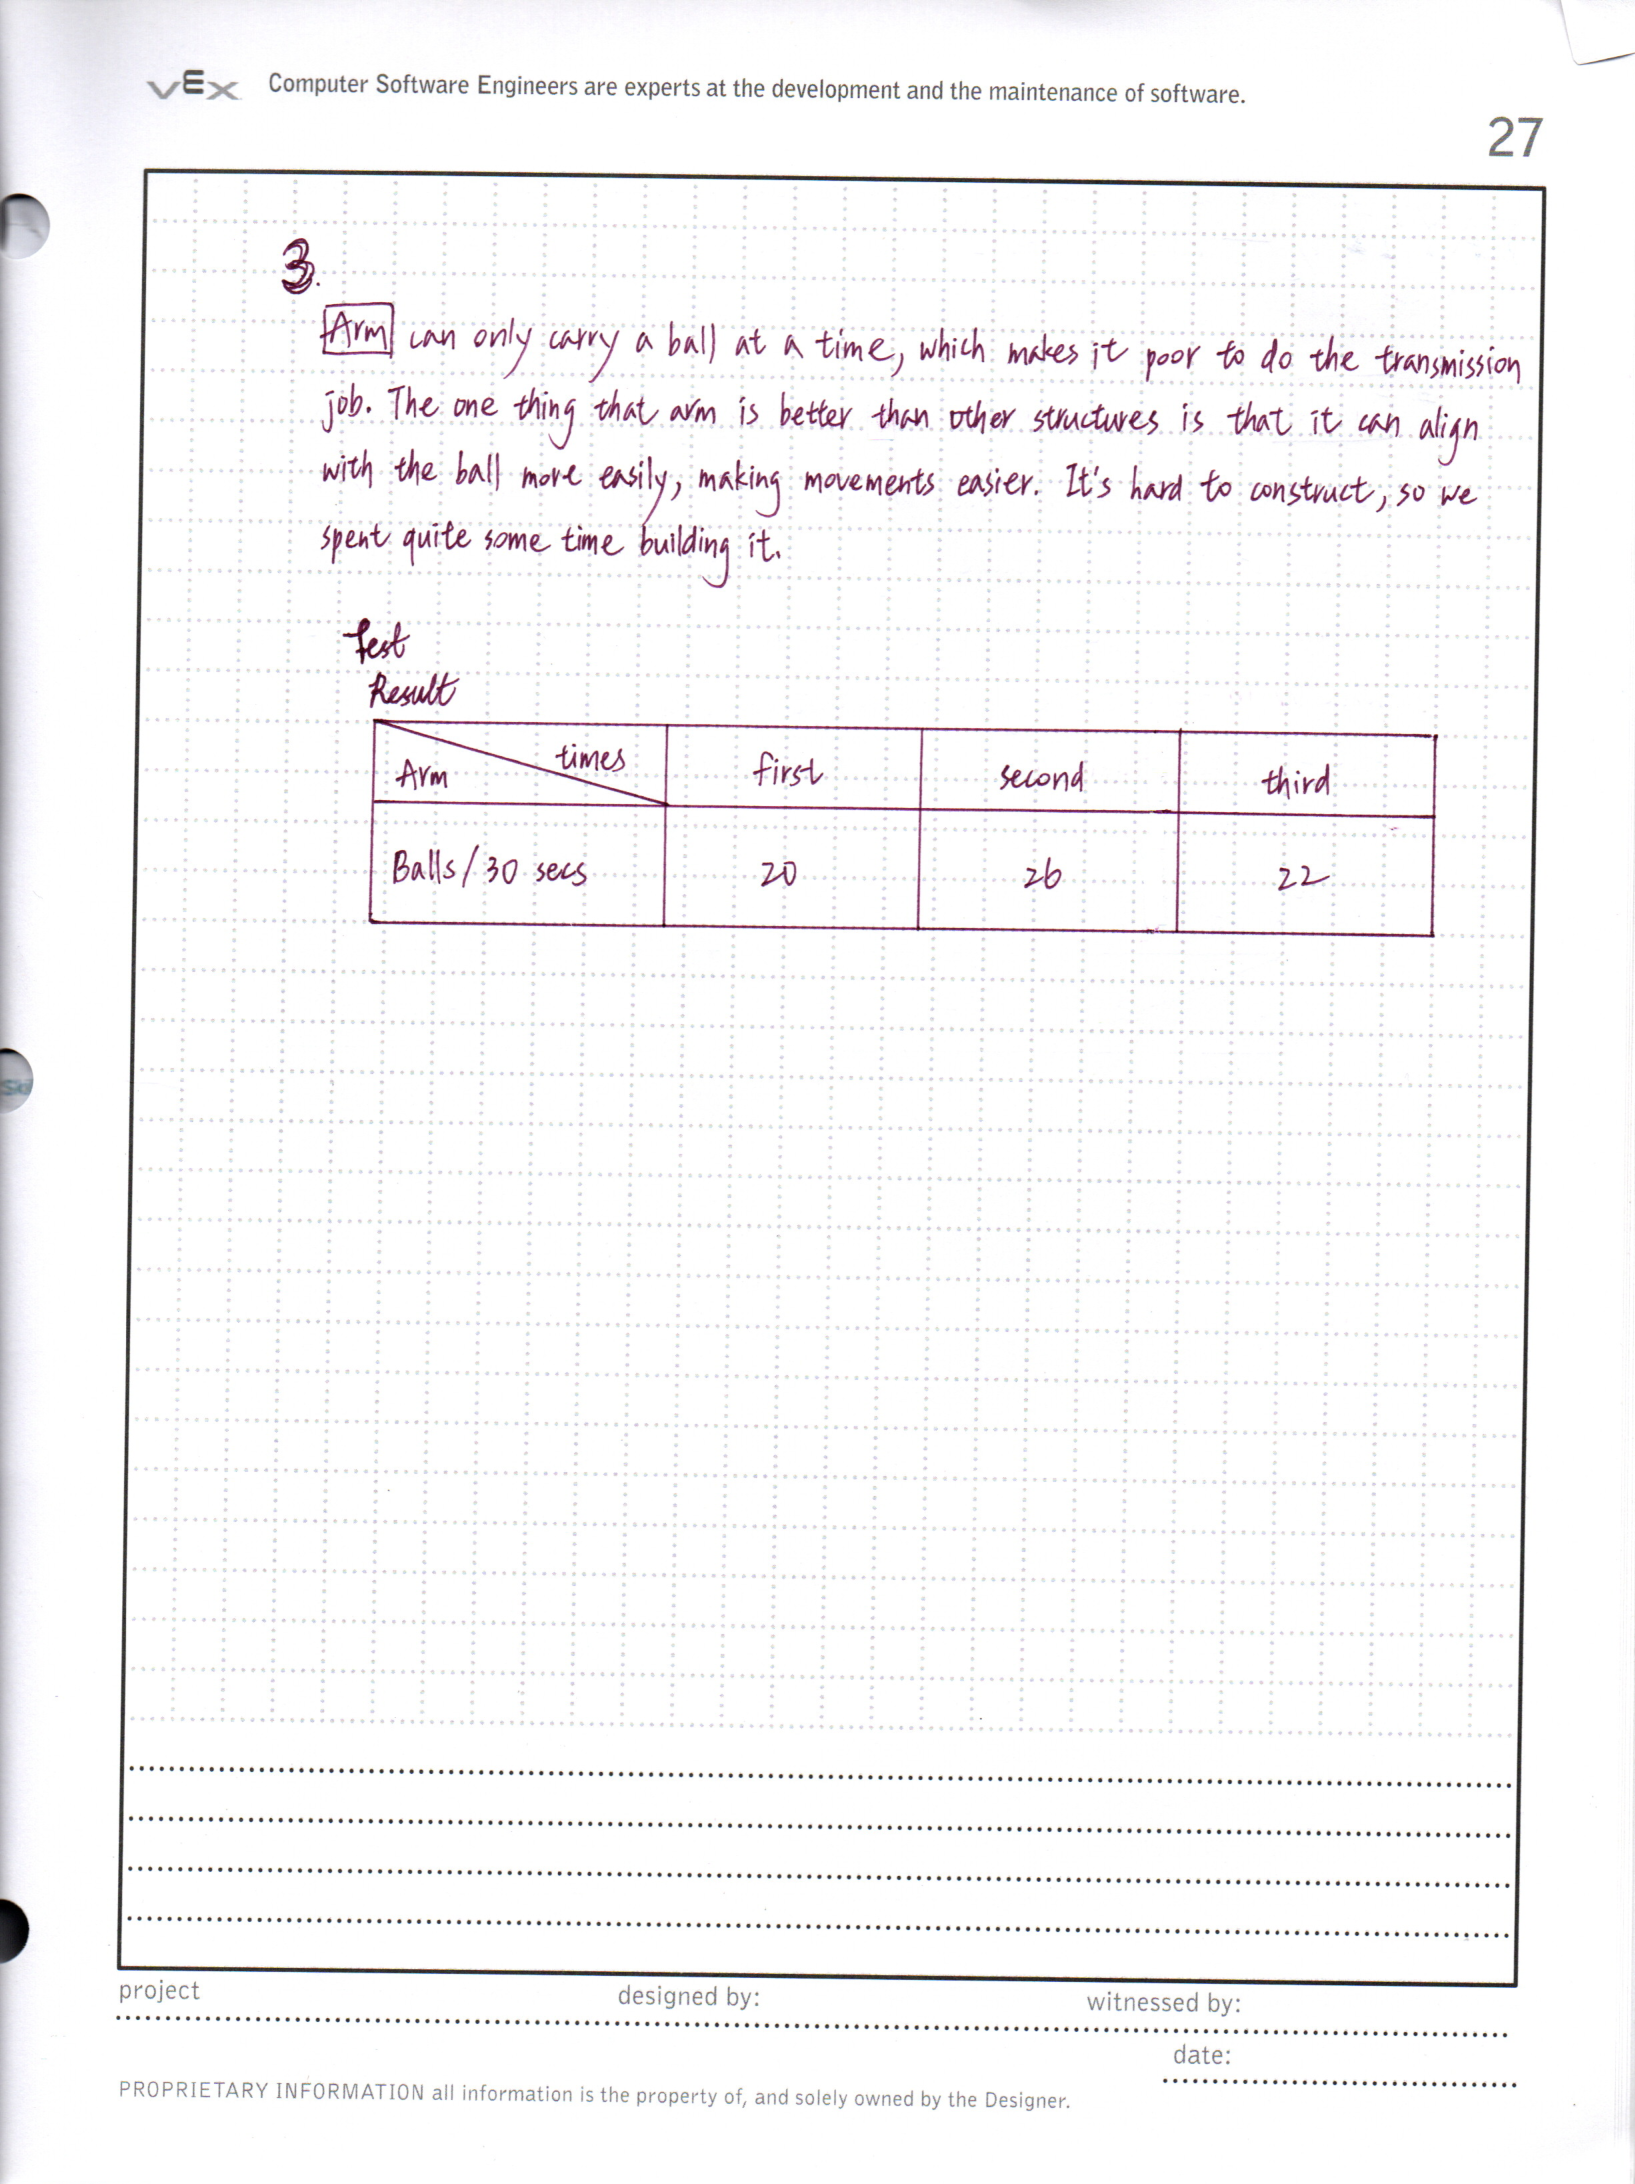 VEX Computer Software Engineers are experts at the development and the maintenance of software.
27
3.
Arm can only carry a ball at a time, which makes it poor to do the transmission
job. The one thing that arm is better than other structures is that it can align
with the ball more easily, making movements easier. It's hard to construct, so we
spent quite some time building it.
Test
Result
times
Arm
first
second
third
Balls/30 secs
20
26
22
project
designed by:
witnessed by:
date:
PROPRIETARY INFORMATION all information is the property of, and solely owned by the Designer.